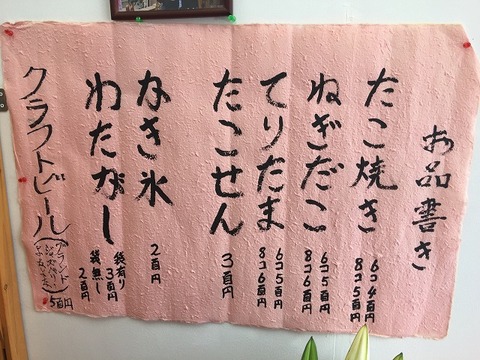 お品書き
たこ焼き
6コ4百円
8コ5百円
ねぎだこ
6コ5百円
8コ6百円
てりたま
6コ5百円
8コ6百円
たこせん
3百円
かき氷
2百円
わたがし
袋有り
3百円
袋無し
2百円
クラフトビール
5百円